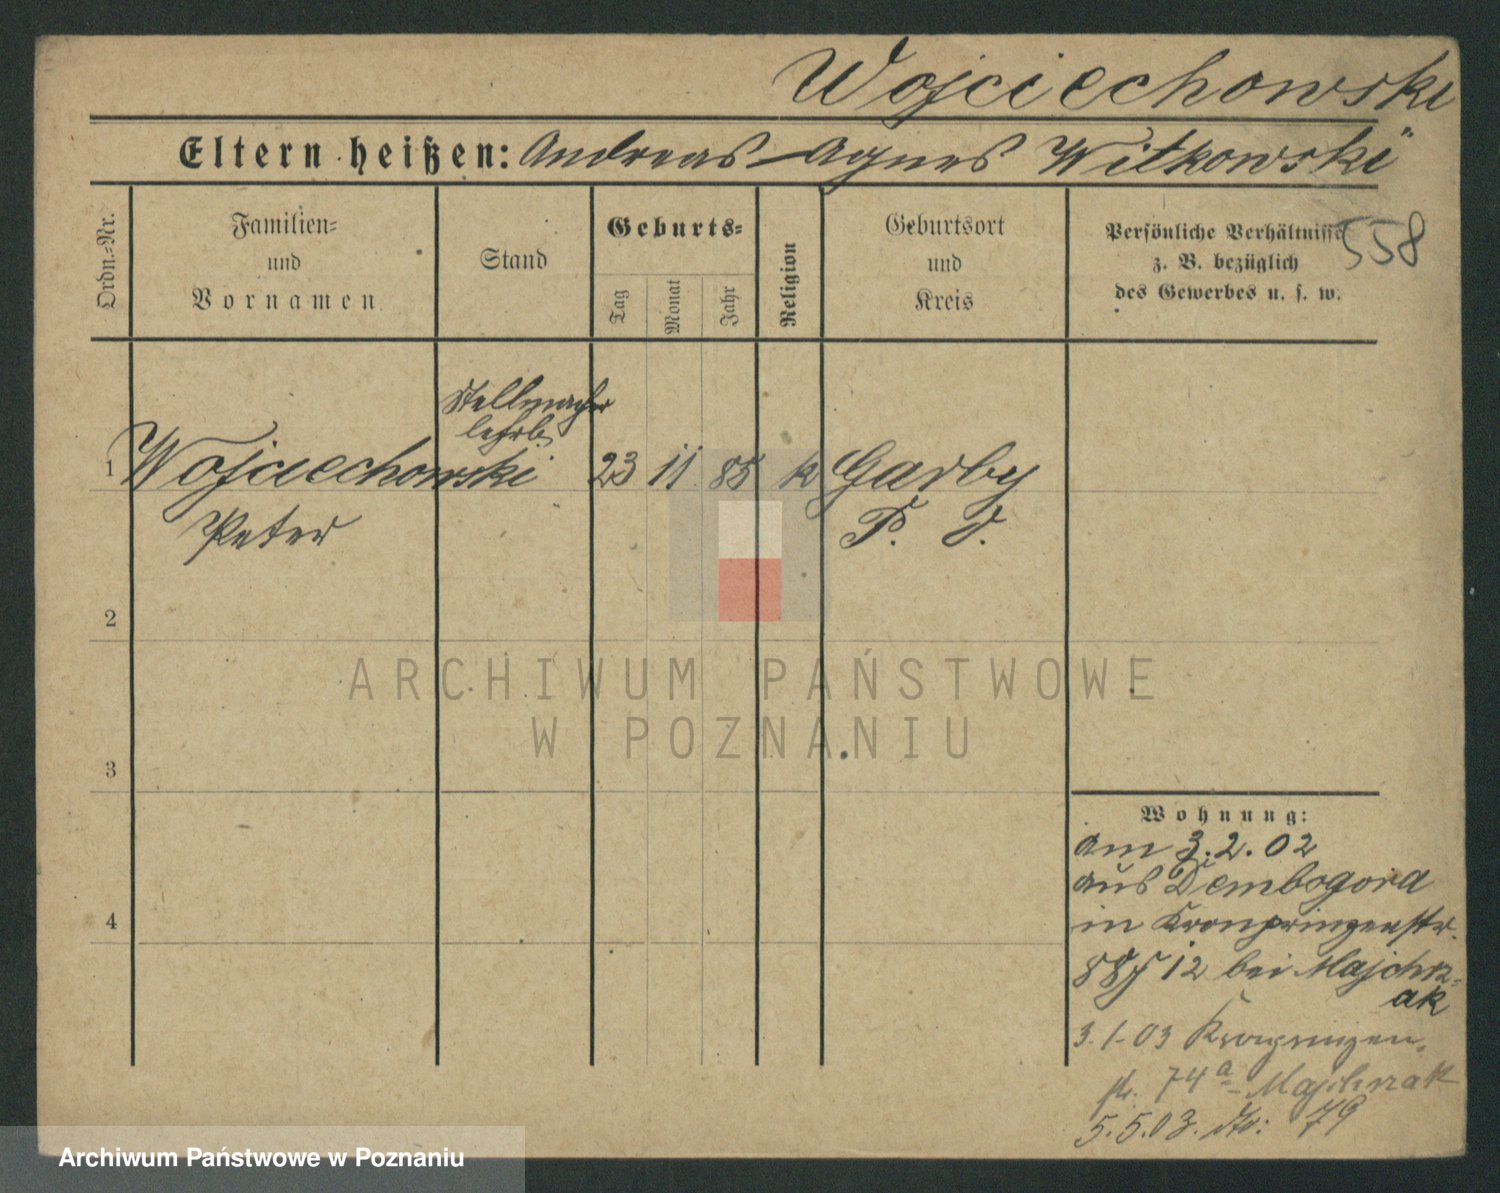 Wojciechowski
Eltern heißen: Andreas – Agnes Witkowski
Ordn.=Nr.
Familien=
und
Vornamen
Stand
Geburts=
Tag
Monat
Jahr
Religion
Geburtsort
und
Kreis
Persönliche Verhältnisse
z. B. bezüglich
des Gewerbes u. s. w.
558
Stellmacher
lehrl.
1 Wojciechowski 23 11 85 k Garby
Peter P. O.
2
3
4
Wohnung:
am 3.2.02
aus Dembogora
in Kronprinzenstr.
12 bei Majchrz=
ak
3.1.03 Kronprinzen
str. 74a Majchrzak
5.5.03. dto: 79
ARCHIWUM PAŃSTWOWE
W POZNANIU
Archiwum Państwowe w Poznaniu